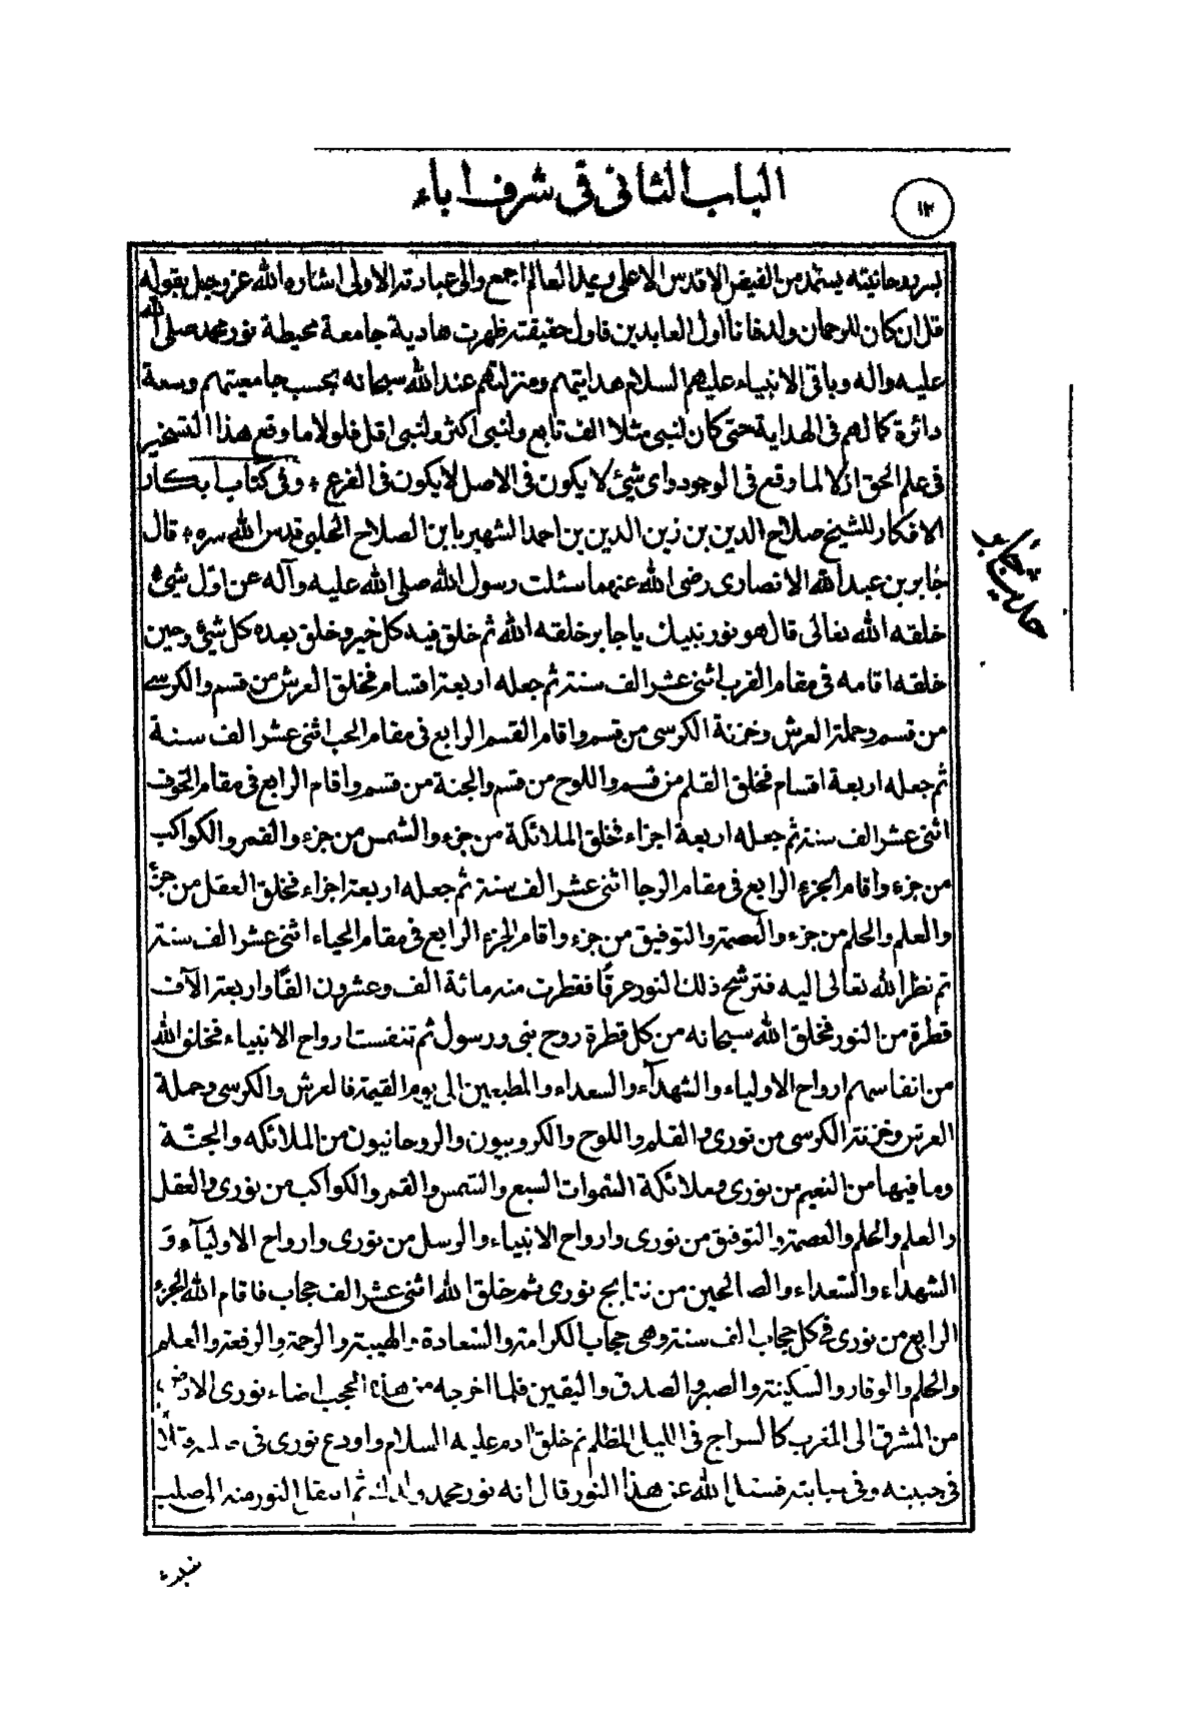 الباب الثانی فی شرف اباء
١٢
بروحانیته یستمد من الفیض الاقدس الاعلی و یمد العالم اجمع والی عبادته الاولی اشاره الله عز وجل بقوله
قل ان کان للرحمان ولد فانا اول العابدین فاول حقیقته ظهرت هادیة جامعة محیطة نور محمد صلی الله
علیه واله وباقی الانبیاء علیهم السلام هدایتهم ومنزلتهم عند الله سبحانه بحسب جامعیتهم وسعة
دائرة کمالهم فی الهدایة حتی کان لنبی مثلا الف تابع ولنبی اکثر ولنبی اقل فلولا ما وقع هذا التسخیر
فی علم الحق ازلا لما وقع فی الوجود وای شیئ لا یکون فی الاصل لا یکون فی الفرع ٭ وفی کتاب ابکار
الافکار للشیخ صلاح الدین بن زین الدین بن احمد الشهیر بابن الصلاح الحلبی قدس الله سره ٭ قال
جابر بن عبد الله الانصاری رضی الله عنهما سئلت رسول الله صلی الله علیه وآله عن اول شیئ
حدیث جابر
خلقه الله تعالی قال هو نور نبیك یا جابر خلقه الله ثم خلق فیه کل خیر وخلق بعده کل شیئ وحین
خلقه اقامه فی مقام القرب اثنی عشر الف سنة ثم جعله اربعة اقسام فخلق العرش من قسم والکرسی
من قسم وحملة العرش وخزنة الکرسی من قسم واقام القسم الرابع فی مقام الحب اثنی عشر الف سنة
ثم جعله اربعة اقسام فخلق القلم من قسم واللوح من قسم والجنة من قسم واقام الرابع فی مقام الخوف
اثنی عشر الف سنة ثم جعله اربعة اجزاء فخلق الملائکة من جزء والشمس من جزء والقمر والکواکب
من جزء واقام الجزء الرابع فی مقام الرجا اثنی عشر الف سنة ثم جعله اربعة اجزاء فخلق العقل من جزء
والعلم والحلم من جزء والعصمة والتوفیق من جزء واقام الجزء الرابع فی مقام الحیاء اثنی عشر الف سنة
ثم نظر الله تعالی الیه فترشح ذلك النور عرقا فقطرت منه مائة الف وعشرون الفا واربعة الآف
قطرة من النور فخلق الله سبحانه من کل قطرة روح نبی ورسول ثم تنفست ارواح الانبیاء فخلق الله
من انفاسهم ارواح الاولیاء والشهدآء والسعداء والمطیعین الی یوم القیمة فالعرش والکرسی وحملة
العرش وخزنة الکرسی من نوری والقلم واللوح والکروبیون والروحانیون من الملائکه والجنة
وما فیها من النعیم من نوری وملائکة السموات السبع والشمس والقمر والکواکب من نوری والعقل
والعلم والحلم والعصمة والتوفیق من نوری وارواح الانبیاء والرسل من نوری وارواح الاولیآء و
الشهداء والسعداء والصالحین من نتایج نوری ثم خلق الله اثنی عشر الف حجاب فاقام الله الجزء
الرابع من نوری فی کل حجاب الف سنة وهی حجاب الکرامة والسعادة والهیبة والرحمة والرفعة والعلم
والحلم والوقار والسکینة والصبر والصدق والیقین فلما اخرجه من هذه الحجب اضاء نوری الارض
من المشرق الی المغرب کالسراج فی اللیل المظلم ثم خلق ادم علیه السلام واودع نوری فی
فی جبینه وفی سبابته فسئل الله عن هذا النور قال انه نور محمد ولدك ثم انتقل النور منه الی صلب